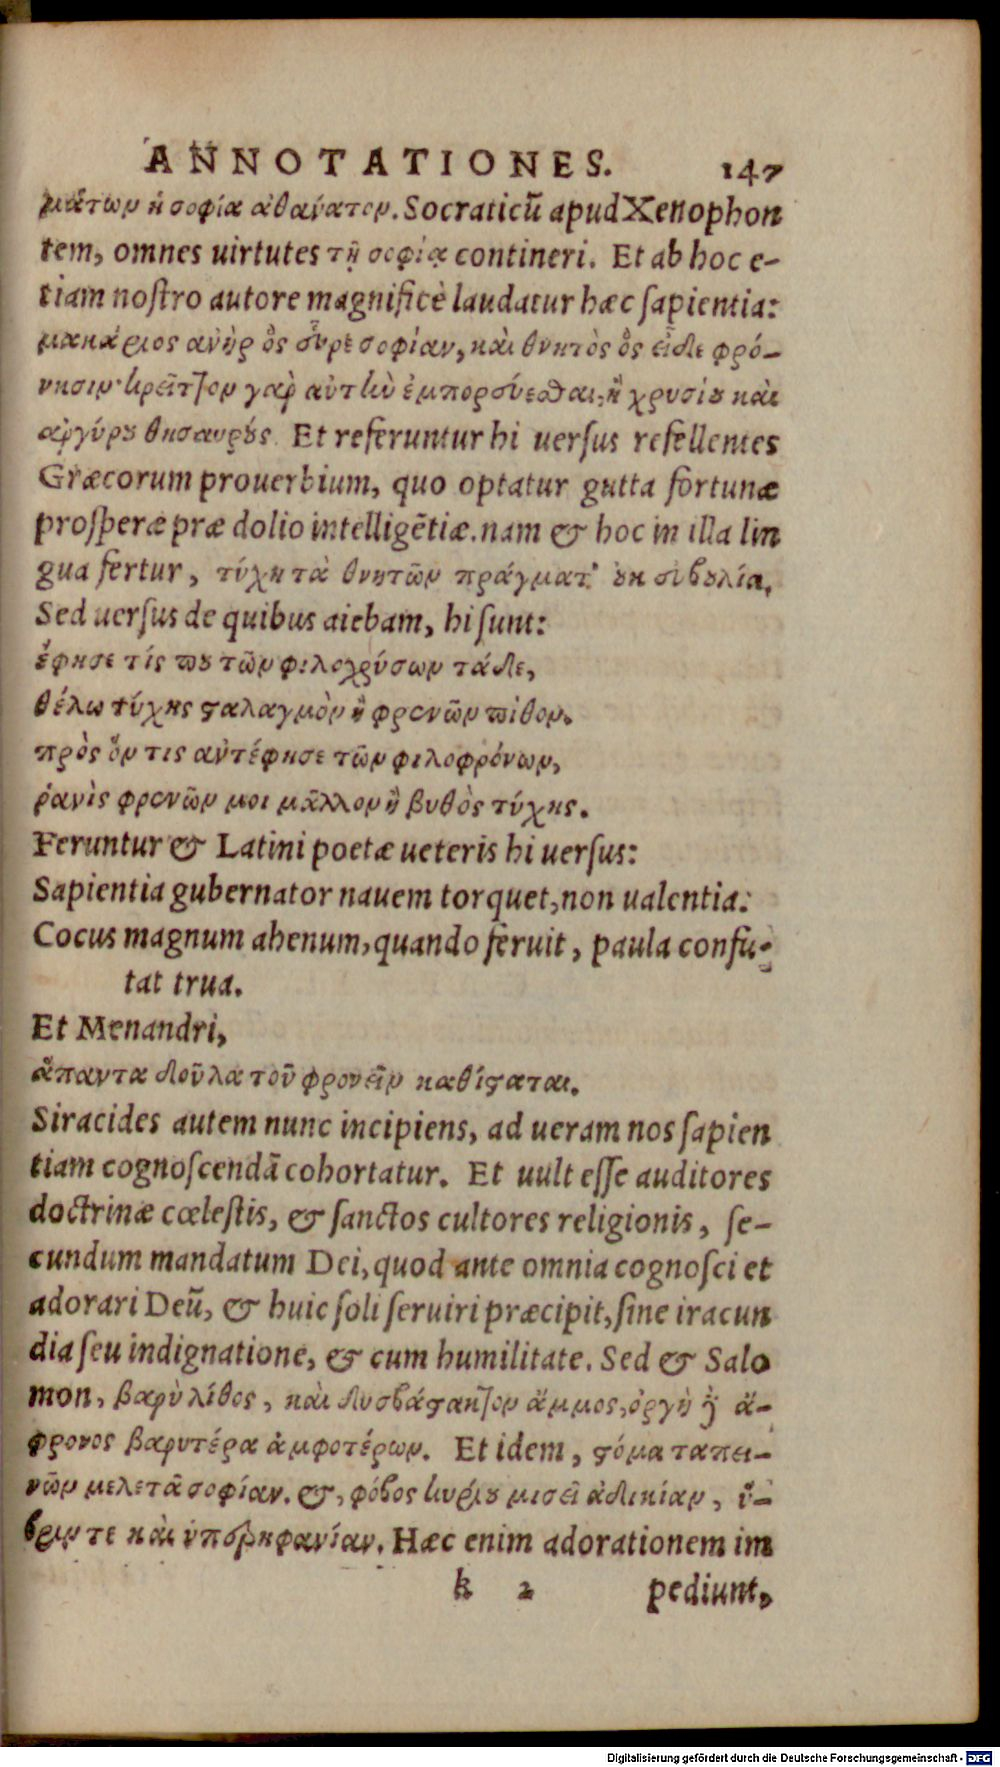 ANNOTATIONES. 147
μάτων ἡ σοφία ἀθάνατον. Socraticū apud Xenophon
tem, omnes uirtutes τῇ σοφίᾳ contineri. Et ab hoc e-
tiam nostro autore magnificè laudatur hæc sapientia:
μακάριος ἀνὴρ ὃς εὗρε σοφίαν, καὶ θνητὸς ὃς εἶδε φρό-
νησιν· κρεῖττον γὰρ αὐτὴν ἐμπορεύεσθαι, ἢ χρυσίου καὶ
ἀργύρου θησαυρούς. Et referuntur hi uersus refellentes
Græcorum prouerbium, quo optatur gutta fortunæ
prosperæ præ dolio intelligētiæ. nam & hoc in illa lin
gua fertur, τύχη τὰ θνητῶν πράγματ' οὐκ εὐβουλία.
Sed uersus de quibus aiebam, hi sunt:
ἔφησε τίς που τῶν φιλοχρύσων τάδε,
θέλω τύχης σταλαγμὸν ἢ φρενῶν πίθον.
πρὸς ὅν τις ἀντέφησε τῶν φιλοφρόνων,
ῥανὶς φρενῶν μοι μᾶλλον ἢ βυθὸς τύχης.
Feruntur & Latini poetæ ueteris hi uersus:
Sapientia gubernator nauem torquet, non ualentia:
Cocus magnum ahenum, quando feruit, paula confu-
tat trua.
Et Menandri,
ἅπαντα δοῦλα τοῦ φρονεῖν καθίσταται.
Siracides autem nunc incipiens, ad ueram nos sapien
tiam cognoscendā cohortatur. Et uult esse auditores
doctrinæ cœlestis, & sanctos cultores religionis, se-
cundum mandatum Dei, quod ante omnia cognosci et
adorari Deū, & huic soli seruiri præcipit, sine iracun
dia seu indignatione, & cum humilitate. Sed & Salo
mon, βαρὺ λίθος, καὶ δυσβάστακτον ἄμμος, ὀργὴ δὲ ἄ-
φρονος βαρυτέρα ἀμφοτέρων. Et idem, στόμα ταπει-
νῶν μελετᾷ σοφίαν. &, φόβος κυρίου μισεῖ ἀδικίαν, ὕ-
βριν τε καὶ ὑπερηφανίαν. Hæc enim adorationem im
k 2 pediunt,
Digitalisierung gefördert durch die Deutsche Forschungsgemeinschaft - DFG